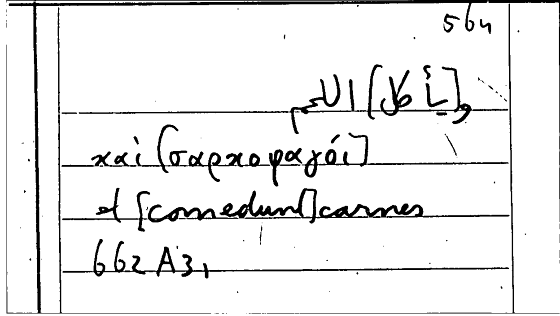 564
و[يأكل] اللحم
καὶ [σαρκοφαγόι]
et [comedunt] carnes
662 A31